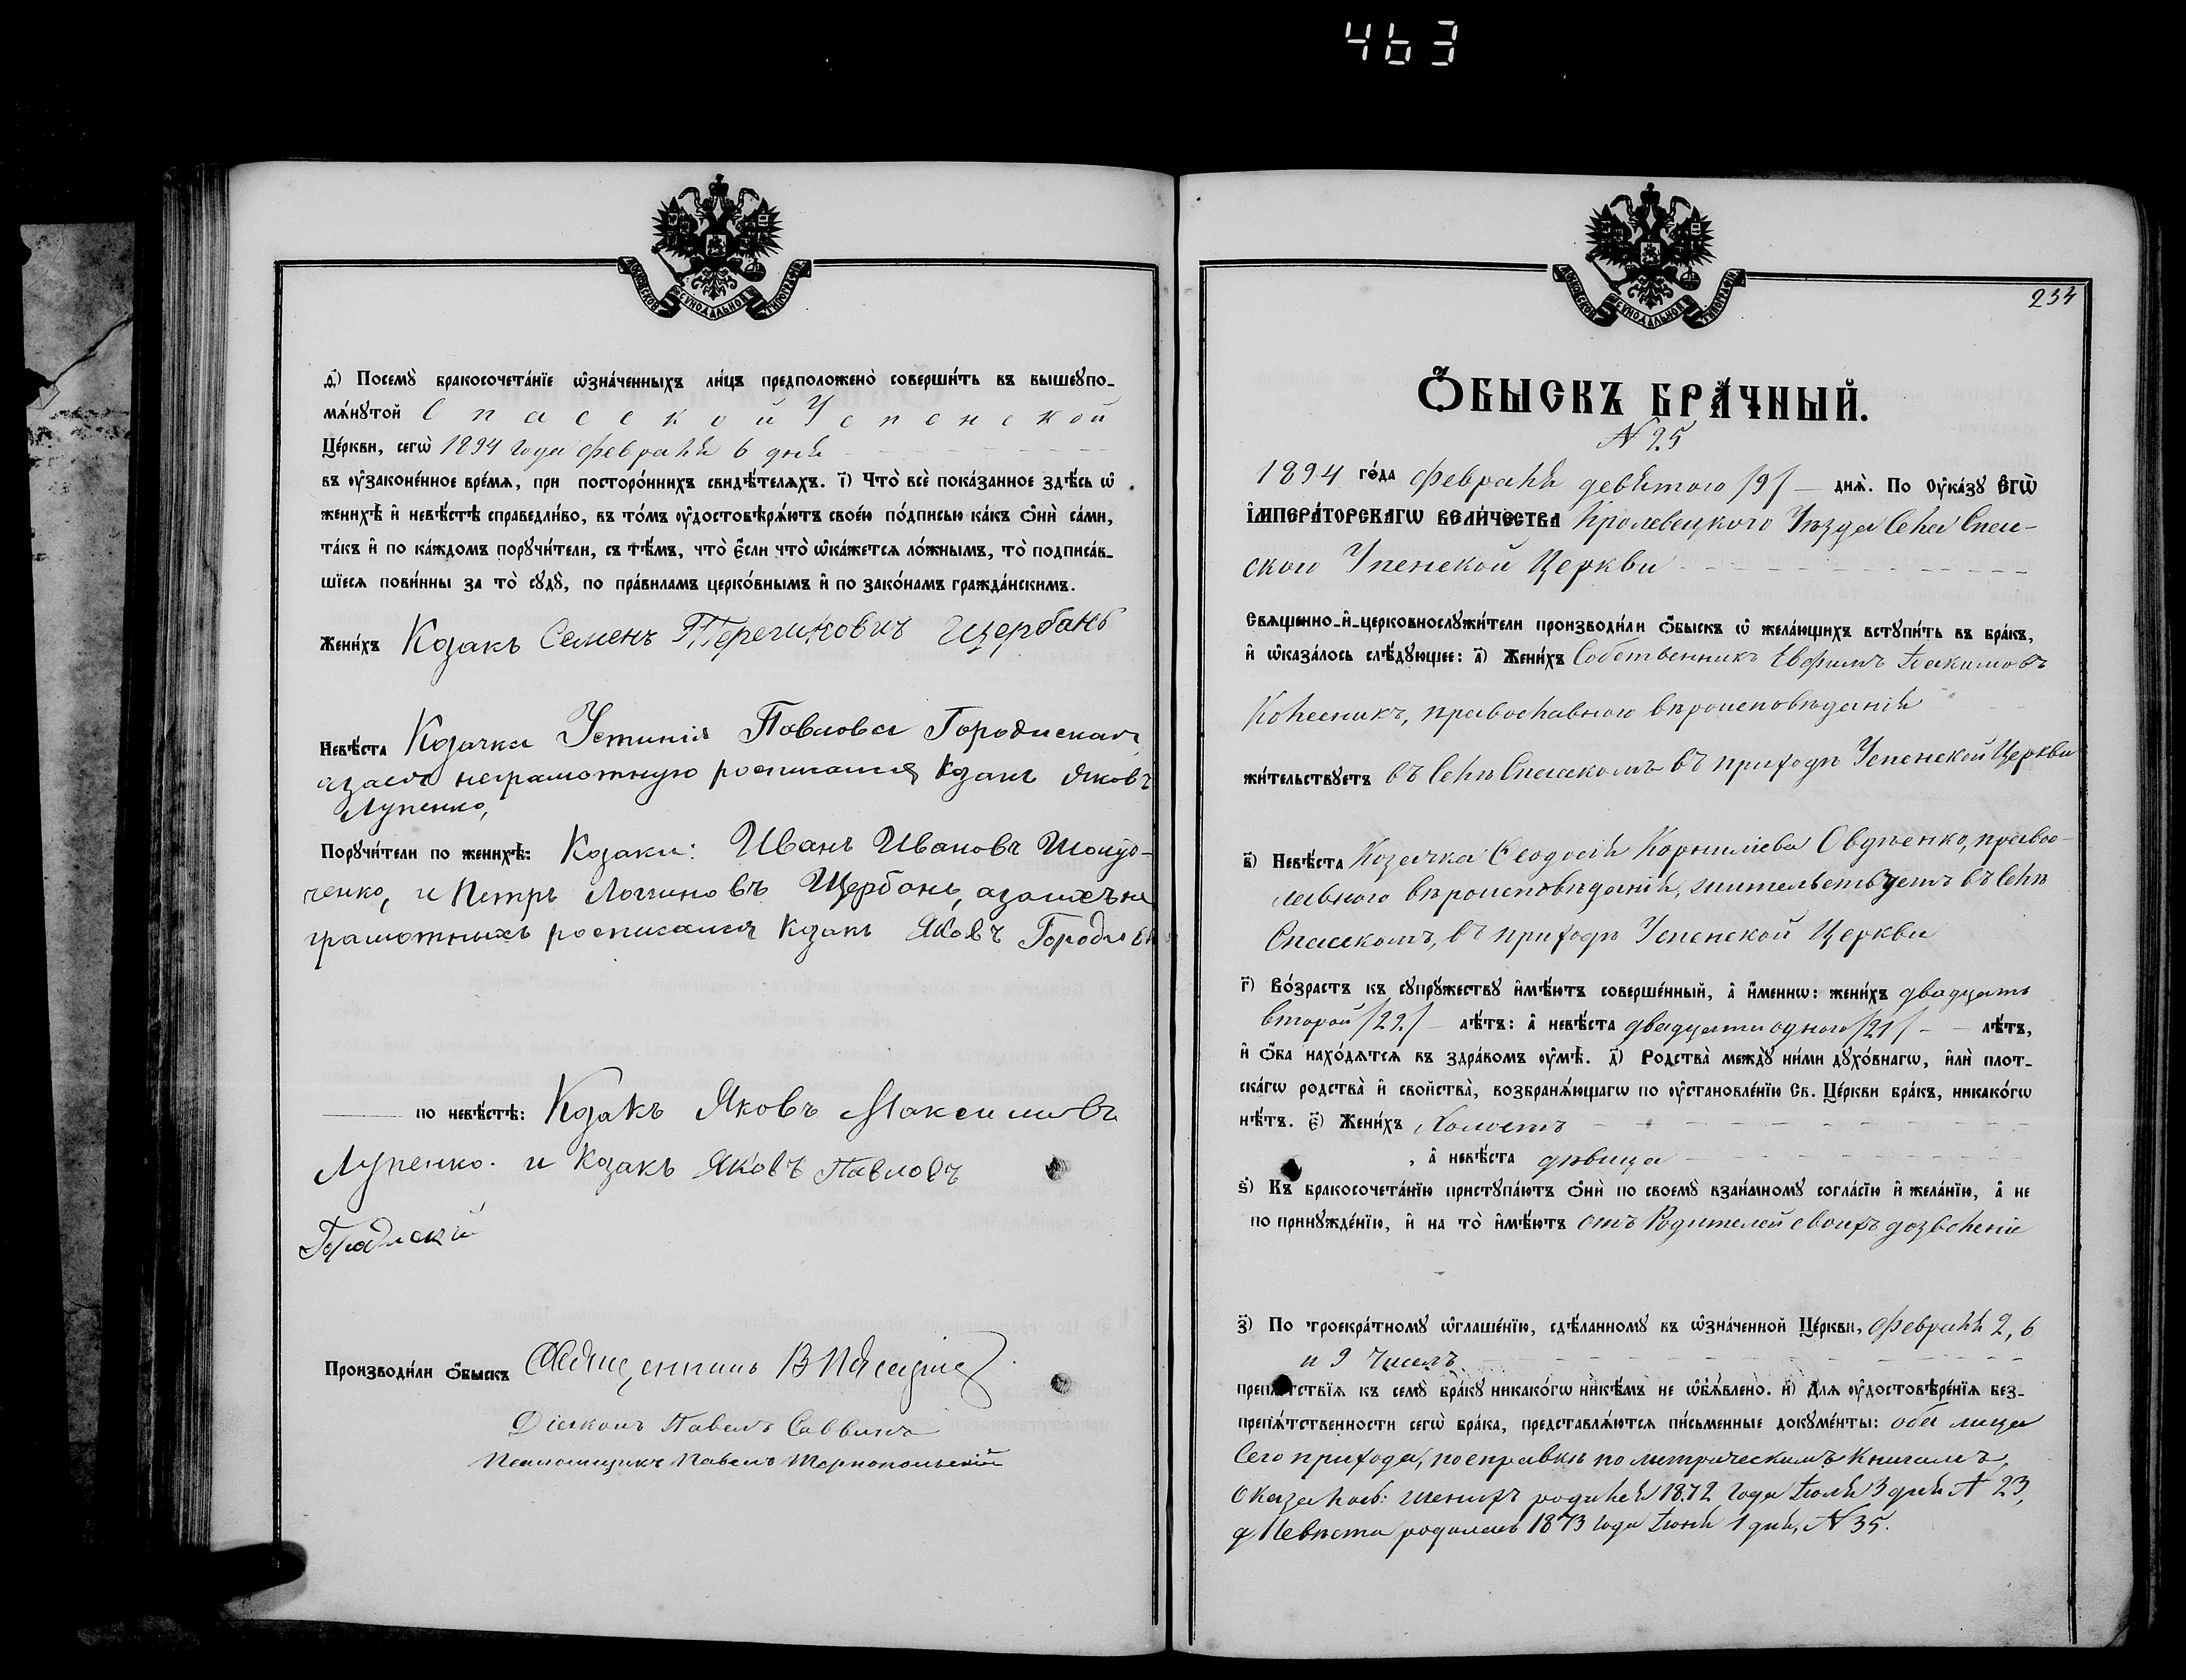 463
МОСКОВСКОЙ СѴНОДАЛЬНОЙ ТИПОГРАФІИ
д҃і) Посемꙋ̀ бракосочета́нїе ѡ҆зна́ченныхъ ли́цъ предположено̀ соверши́ть въ вышеꙋпо-
мѧ́нꙋтой Спасской Успенской
Це́ркви, сегѡ̀ 1894 года февраля 6 дня
въ ᲂу҆законе́нное вре́мѧ, при посторо́ннихъ свидѣ́телѧхъ. і҃) Что̀ всѐ пока́занное здѣ́сь ѡ҆
женихѣ̀ и҆ невѣ́стѣ справедли́во, въ то́мъ ᲂу҆достовѣрѧ́ютъ свое́ю по́дписью ка́къ ѻ҆нѝ са́ми,
та́къ и҆ по ка́ждомъ порꙋчи́тели, съ тѣ́мъ, что̀ є҆́сли что̀ ѡ҆ка́жетсѧ ло́жнымъ, то̀ подписа́в-
шїесѧ пови́нны за то̀ сꙋдꙋ̀, по пра́виламъ церко́внымъ и҆ по зако́намъ гражда́нскимъ.
Жени́хъ Козакъ Семенъ Щербанъ
Невѣ́ста Козачка Устинія Павлова Городиская
а за ея неграмотную росписался козакъ Яковъ
Лупенко,
Порꙋчи́тели по женихѣ̀: Козаки: Иванъ Ивановъ
ченко, и Петръ Логиновъ Щербанъ, а за ихъ не
грамотныхъ росписался Козакъ Яковъ
по невѣ́стѣ: Козакъ Яковъ Максимовъ
Лупенко. и Козакъ Яковъ Павловъ
Городиский
Производи́ли ѻ҆́быскъ Священникъ В
Діаконъ Павелъ Саввинъ
Псаломщикъ Павелъ Тернопольскій
МОСКОВСКОЙ СѴНОДАЛЬНОЙ ТИПОГРАФІИ
234
Ѻ҆́БЫСКЪ БРА́ЧНЫЙ.
N 25
1894 го́да февраля девятого /9/ — днѧ̀. По ᲂу҆ка́зꙋ Є҆ГѠ̀
І҆МПЕРА́ТОРСКАГѠ ВЕЛИ́ЧЕСТВА Кролевецкого Уѣзда Села Спас-
ского Успенской Церкви
Свѧщенно-и҆-церковнослꙋжи́тели производи́ли ѻ҆́быскъ ѡ҆ жела́ющихъ встꙋпи́ть въ бра́къ,
и҆ ѡ҆каза́лось слѣ́дꙋющее: а҃) Жени́хъ Собственникъ Евфимъ Іоакимовъ
Колесникъ, православного вѣроисповѣданія
жи́тельствꙋетъ въ Селѣ Спасскомъ въ приходѣ Успенской Церкви
в҃) Невѣ́ста Козачка Ѳеодосія Корниліева Овдѣенко, правос-
лавного вѣроисповѣданія, жительствуетъ въ Селѣ
Спасскомъ, въ приходѣ Успенской Церкви
г҃) Во́зрастъ къ сꙋпрꙋ́жествꙋ и҆мѣ́ютъ соверше́нный, а҆ и҆́меннѡ: жени́хъ двадцать
второй /22/ — лѣ́тъ: а҆ невѣ́ста двадцати одного /21/ — лѣ́тъ,
и҆ ѻ҆́ба нахо́дѧтсѧ въ здра́вомъ ᲂу҆мѣ̀. д҃) Родства̀ междꙋ̀ ни́ми дꙋхо́внагѡ, и҆лѝ плот-
ска́гѡ родства̀ и҆ свойства̀, возбранѧ́ющагѡ по ᲂу҆становле́нїю Св. Це́ркви бра́къ, никако́гѡ
нѣ́тъ. є҃) Жени́хъ холостъ
, а҆ невѣ́ста дѣвица
ѕ҃) Къ бракосочета́нїю пристꙋпа́ютъ ѻ҆нѝ по своемꙋ̀ взаи́мномꙋ согла́сїю и҆ жела́нїю, а҆ не
по принꙋжде́нїю, и҆ на то̀ и҆мѣ́ютъ отъ Родителей своихъ дозволеніе
з҃) По троекра́тномꙋ ѡ҆глаше́нїю, сдѣ́ланномꙋ въ ѡ҆зна́ченной Це́ркви, февраля 2, 6
и 9 чиселъ
препѧ́тствїѧ къ семꙋ̀ бра́кꙋ никако́гѡ нике́мъ не ѡ҆б̾ѧ́влено. и҃) Длѧ ᲂу҆достовѣре́нїѧ без-
препѧ́тственности сегѡ̀ бра́ка, представлѧ́ютсѧ пи́сьменные докꙋме́нты: оба лица
Сего прихода, по справкѣ по метрическимъ Книгамъ
оказалось: женихъ родился 1872 года Іюля 3 дня N 23,
а Невѣста родилась 1873 года Іюня 1 дня, N 35.